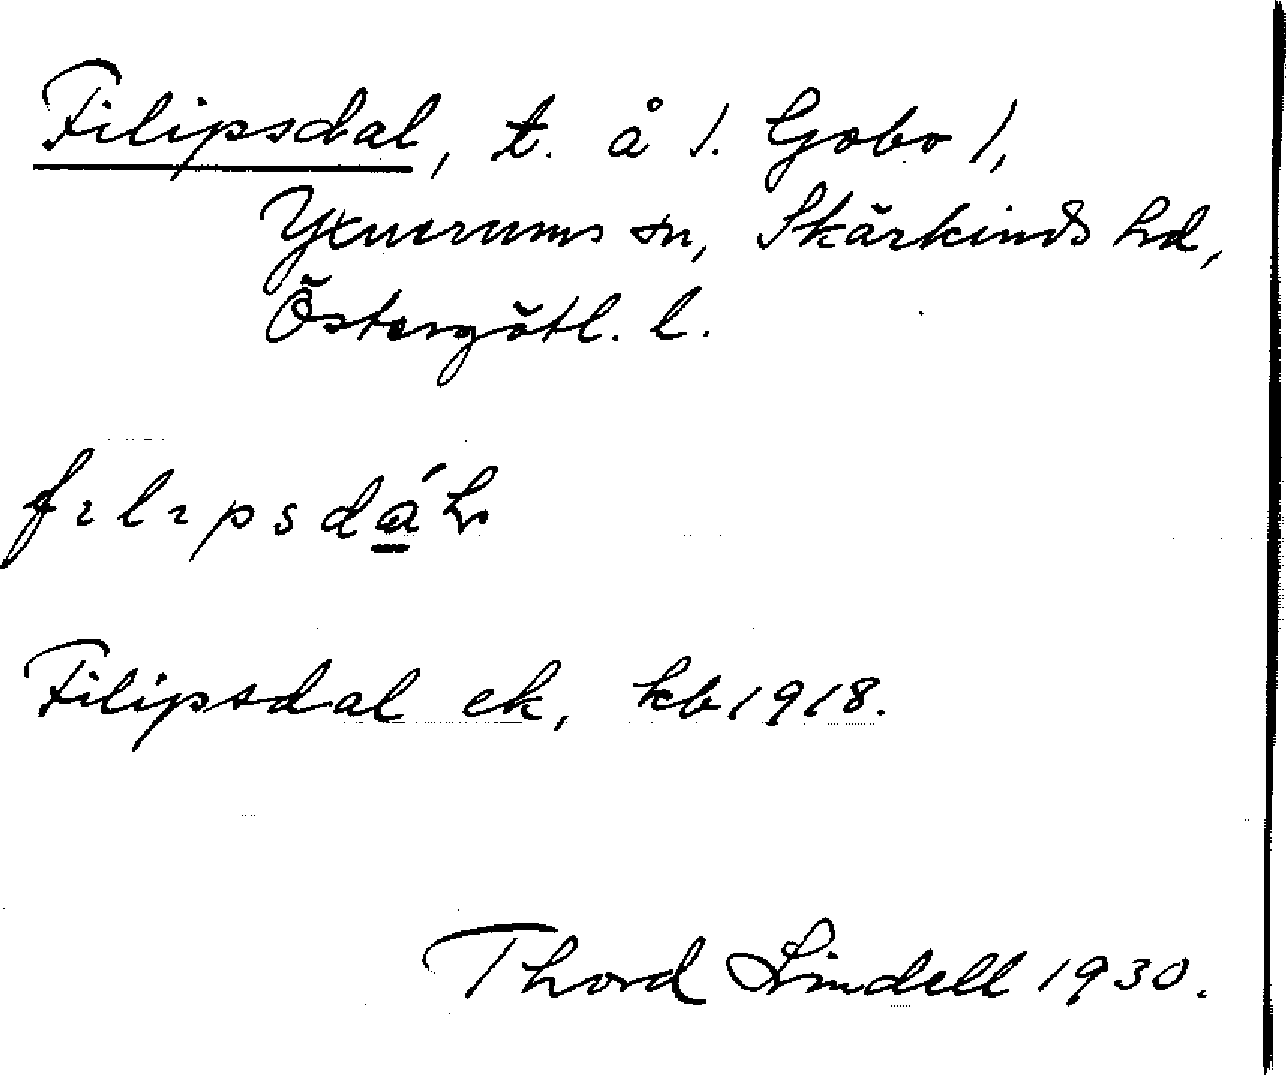 Filipsdal, t. å 1. Gobo 1,
Yxnerums sn, Skärkinds hd,
Östergötl. l.
Filipsdal ek, kb 1918.
Thord Lindell 1930.